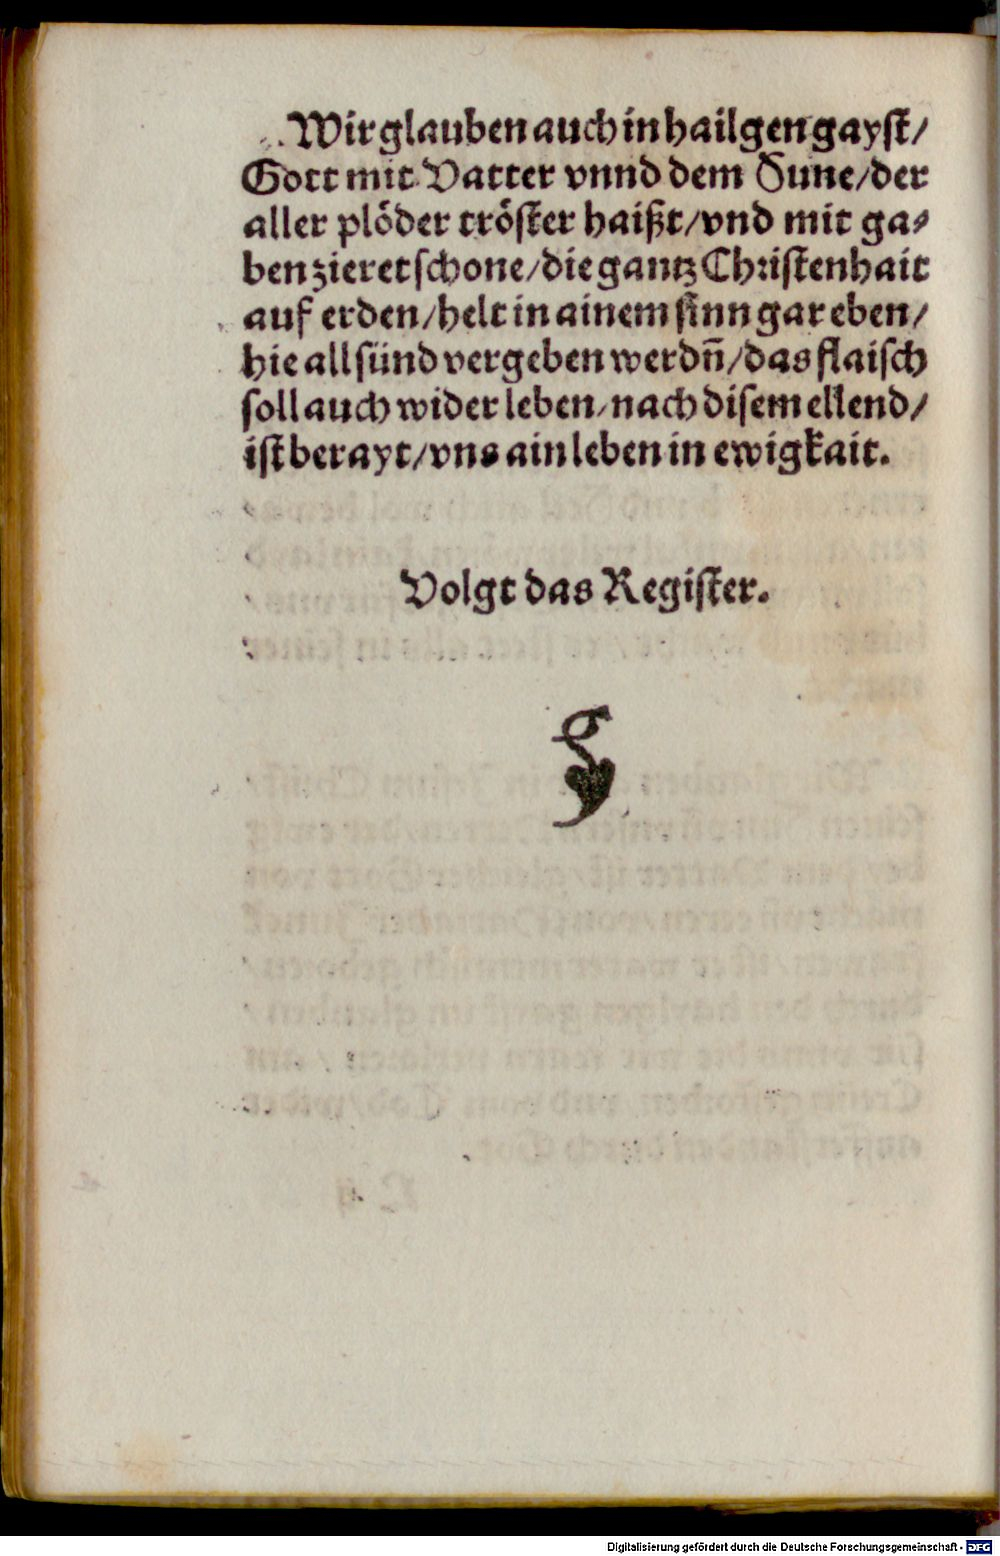 Wir glauben auch in hailgen gayst/
Gott mit Vatter vnnd dem Sune/der
aller plöder tröster haißt/vnd mit ga⸗
ben zieret schone/die gantz Christenhait
auf erden/helt in ainem sinn gar eben/
hie all sünd vergeben werdñ/das flaisch
soll auch wider leben/nach disem ellend/
ist berayt/vns ain leben in ewigkait.
Volgt das Register.
Digitalisierung gefördert durch die Deutsche Forschungsgemeinschaft - DFG